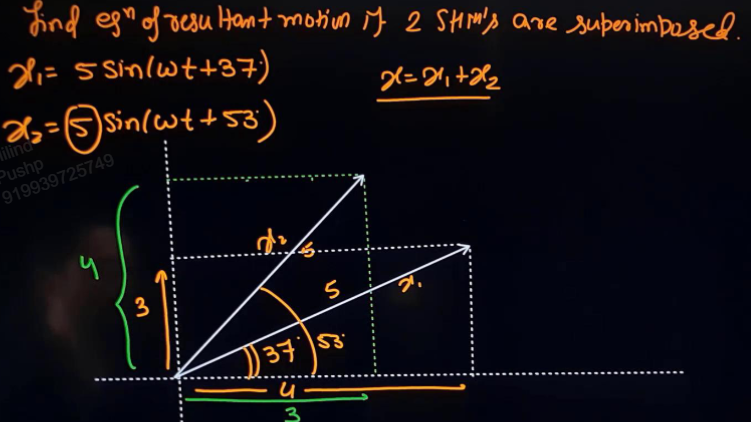 find eqⁿ of resultant motion if 2 SHM's are superimposed.
x₁= 5 sin(ωt+37°)
x=x₁+x₂
x₂= 5 sin(ωt+53°)
Pushp
919939725749
x₂ 5
4
3
5 x₁
37° 53°
4
3